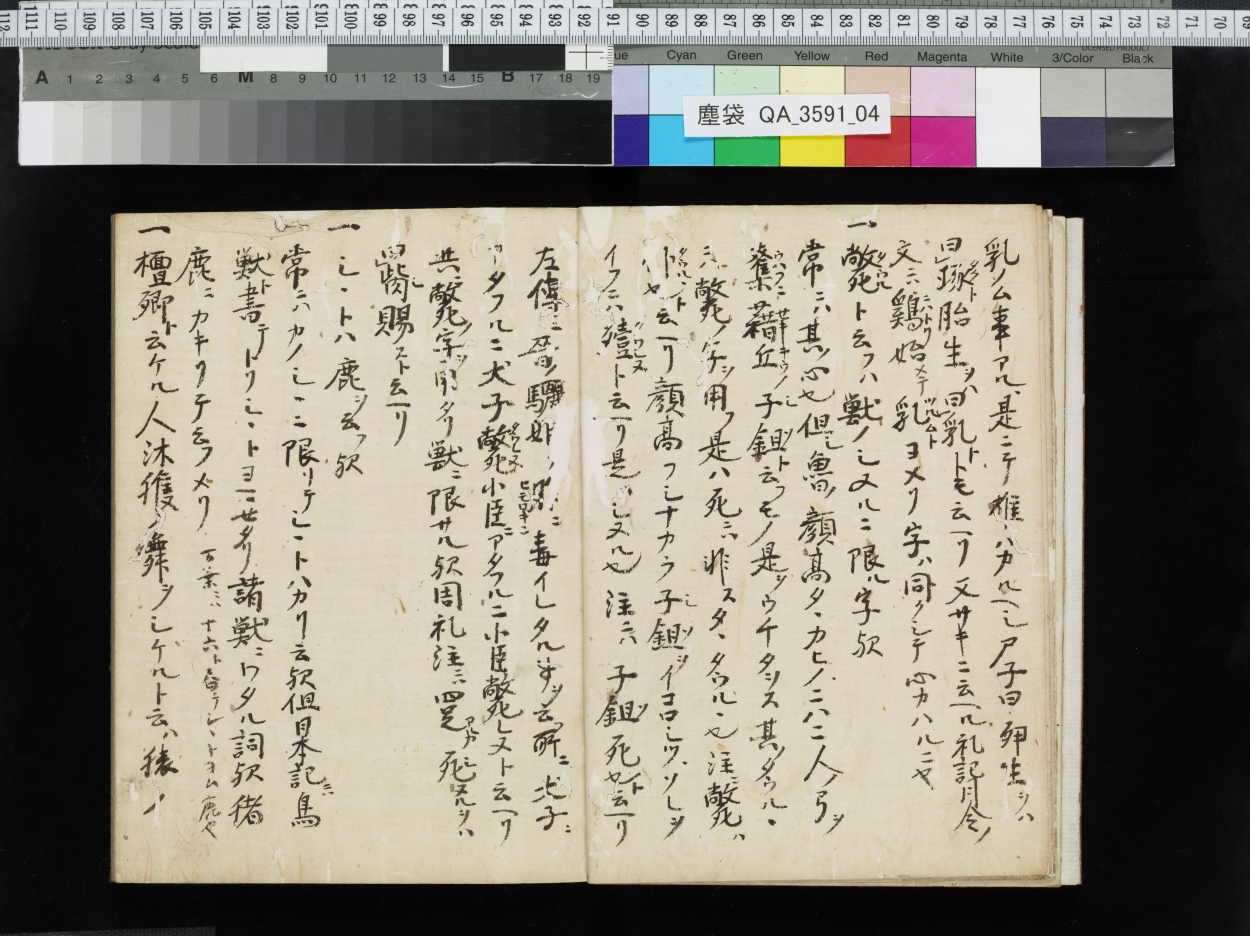 111 110 109 108 107 106 105 104 103 102 101 100 99 98 97 96 95 94 93 92 91 90 89 88 87 86 85 84 83 82 81 80 79 78 77 76 75 74 73 72 71 70
Cyan Green Yellow Red Magenta White 3/Color Black
LICENSED PRODUCT
A 1 2 3 4 5 6 M 8 9 10 11 12 13 14 15 B 17 18 19
塵袋 QA_3591_04
乳ノム事アル是ニテ推ハカルヘシ尸子曰卵生ヲハ
曰琢胎生ヲハ曰乳トモ云ヘリ又サキニ云ヘル礼記月令ノ
文ニ鶏始メテ乳ヨメリ字ハ同クシテ心カハルニヤ
一斃死ト云フハ獣ノシヌルニ限ル字欤
常ニハ其ノ心也但シ魯ノ顔高タヽカヒノニハニ人ノ弓ヲ
藉丘子鉏ト云フモノ是ヲウチタヲス其ノタウルヽ
ニ斃ノ字ヲ用フ是ハ死ニハ非スタヽタウルヽ也注ニ斃ハ
仆也ト云ヘリ顔高フシナカラ子鉏ヲイコロシツソレヲ
イフニハ殪ト云ヘリ是ハシヌル也注ニハ子鉏死也ト云ヘリ
左傳ニ晋ノ驪姫 毒イレタル事ヲ云フ所ニ犬子ニ
アタフルニ犬子斃小臣ニアタフルニ小臣斃レヌト云ヘリ
共ニ斃字ヲ用タリ獣ニ限サル欤周礼注ニハ四足死ヌルヲハ
スト云ヘリ
一シヽトハ鹿ヲ云フ欤
常ニハカノシヽニ限リテシヽトハカリ云欤但日本記ニハ鳥
獣ト書テトリシヽトヨマセタリ諸獣ニワタル詞欤猪
鹿ニカキリテ云フメリ 万葉ニハ十六ト書テシヽトヨム鹿也
一檀卿ト云ケル人沐猴ノ舞ヲシケルト云ハ猿ノ